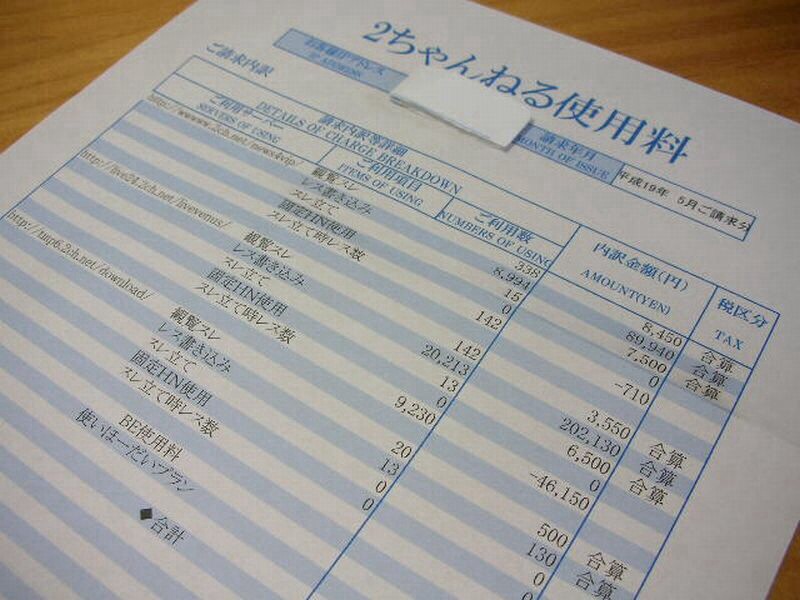 2ちゃんねる使用料
お客様IPアドレス
IP ADDRESS
請求年月
MONTH OF ISSUE
平成19年 5月ご請求分
ご請求内訳
請求内訳等詳細
DETAILS OF CHARGE BREAKDOWN
ご利用サーバー
SERVERS OF USING
ご利用項目
ITEMS OF USING
ご利用数
NUMBERS OF USING
内訳金額(円)
AMOUNT(YEN)
税区分
TAX
http://wwww.2ch.net/news4vip/
観覧スレ 338 8,450 合算
レス書き込み 8,994 89,940 合算
スレ立て 15 7,500 合算
固定HN使用 0 0
スレ立て時レス数 142 -710
http://live24.2ch.net/livevenus/
観覧スレ 142 3,550 合算
レス書き込み 20,213 202,130 合算
スレ立て 13 6,500 合算
固定HN使用 0 0
スレ立て時レス数 9,230 -46,150
http://tmp6.2ch.net/download/
観覧スレ 20 500 合算
レス書き込み 13 130 合算
スレ立て 0 0
固定HN使用 0 0
スレ立て時レス数
BE使用料
使いほーだいプラン
◆合計